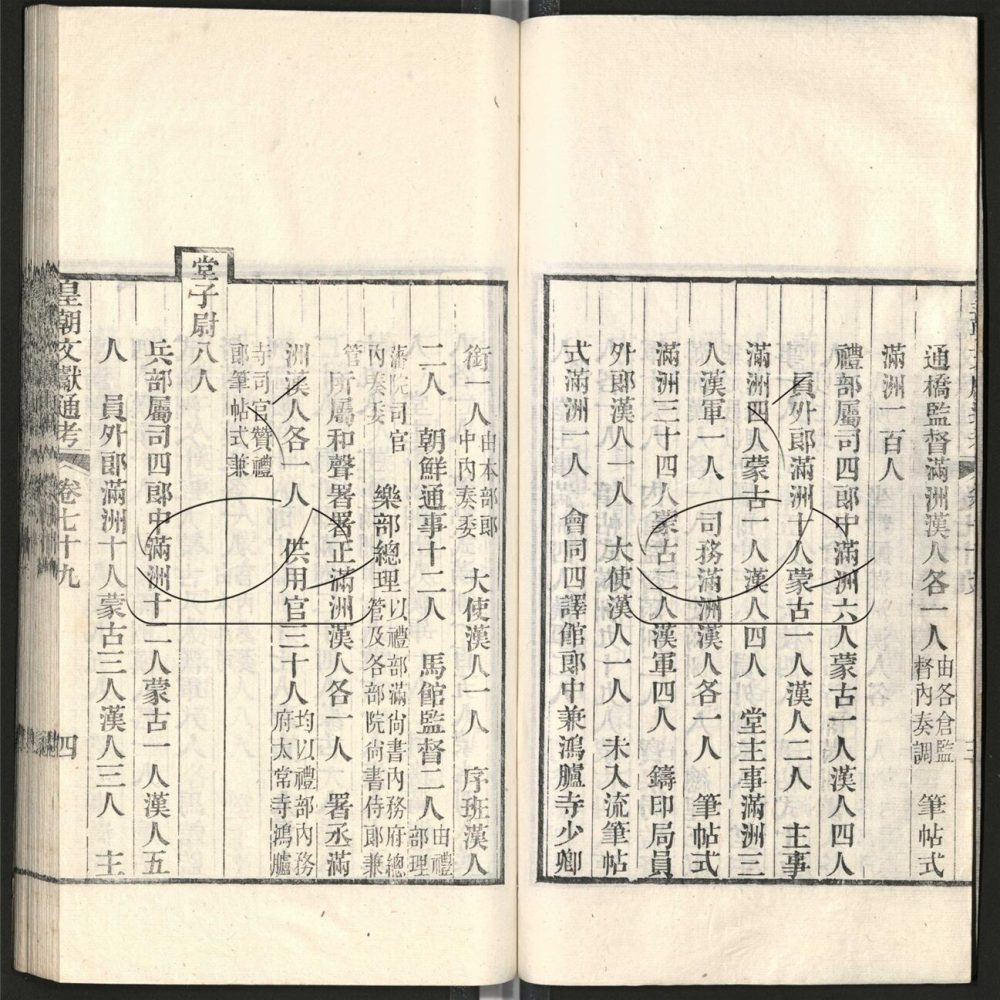 通橋監督滿洲漢人各一人由各倉監督內奏調　筆帖式
滿洲一百人
禮部屬司四郎中滿洲六人蒙古一人漢人四人
員外郎滿洲十人蒙古一人漢人二人　主事
滿洲四人蒙古一人漢人四人　堂主事滿洲三
人漢軍一人　司務滿洲漢人各一人　筆帖式
滿洲三十四人蒙古二人漢軍四人　鑄印局員
外郎漢人一人　大使漢人一人　未入流筆帖
式滿洲一人　會同四譯館郎中兼鴻臚寺少卿
銜一人由本部郎中內奏委　大使漢人一人　序班漢人
二人　朝鮮通事十二人　馬館監督二人由禮部理
藩院司官內奏委　樂部總理以禮部滿尚書內務府總管及各部院尚書侍郎兼
管　所屬和聲署署正滿洲漢人各一人　署丞滿
洲漢人各一人　供用官三十人均以禮部內務府太常寺鴻臚
寺司官贊禮郎筆帖式兼
堂子尉八人
兵部屬司四郎中滿洲十二人蒙古一人漢人五
人　員外郎滿洲十人蒙古三人漢人三人　主
皇朝文獻通考　卷七十九　四